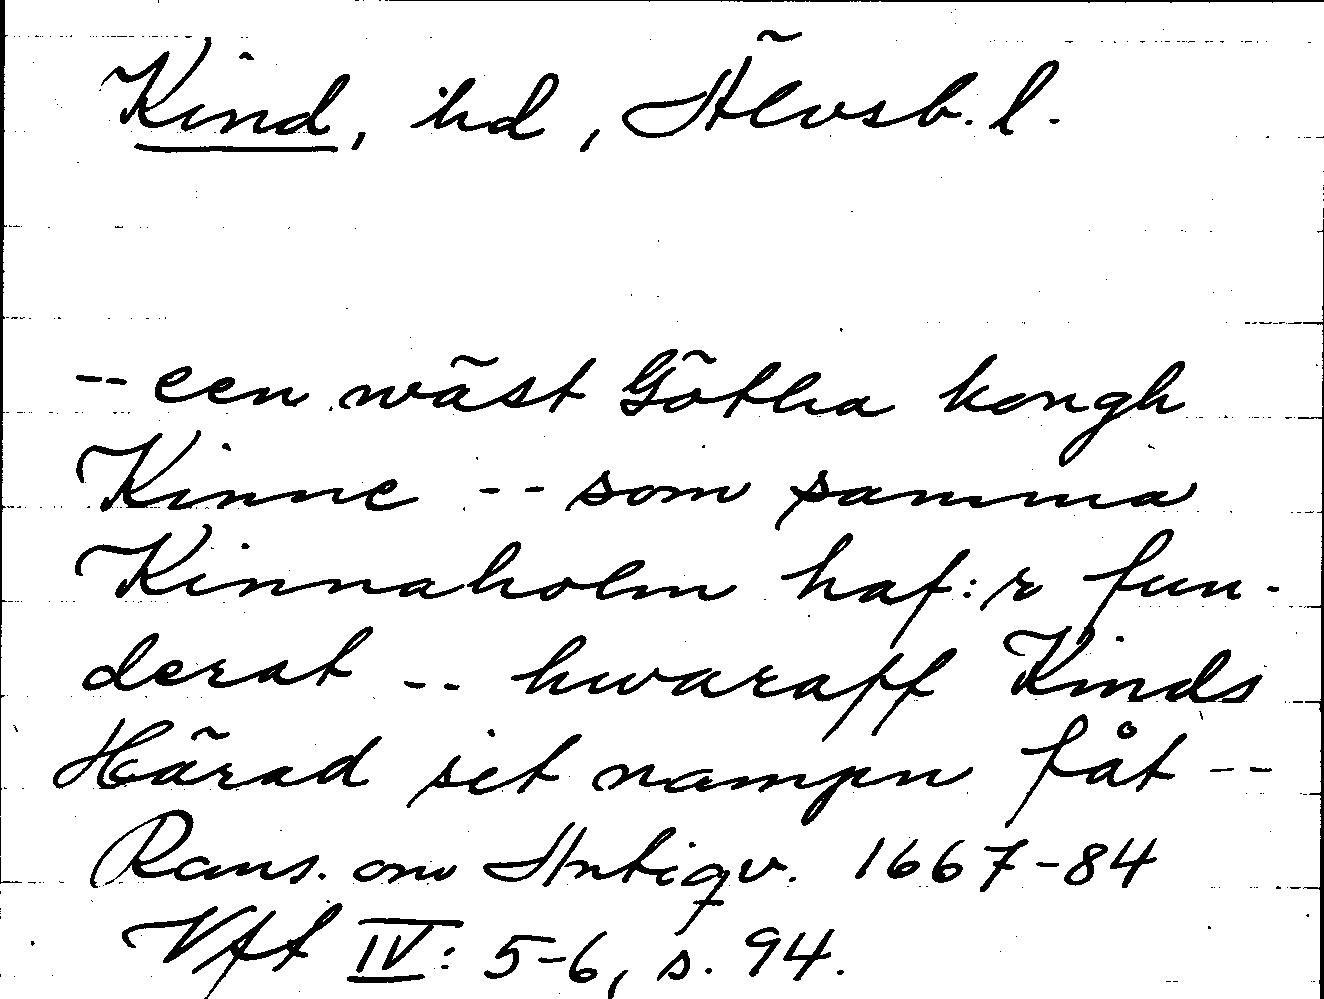 Kind, hd, Älvsb. l.
-- een wäst Götha kongh
Kinne -- som samma
Kinnaholm haf:r fun-
derat -- hwaraff Kinds
Härad sit nampn fåt --
Rans. om Antiqv. 1667-84
Vft IV: 5-6, s. 94.